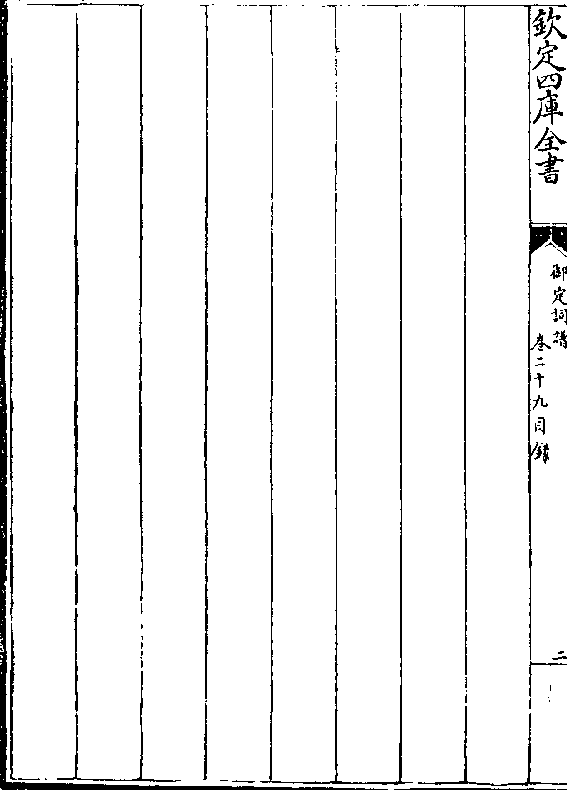 欽定四庫全書
御定詞譜
卷二十九目錄
二